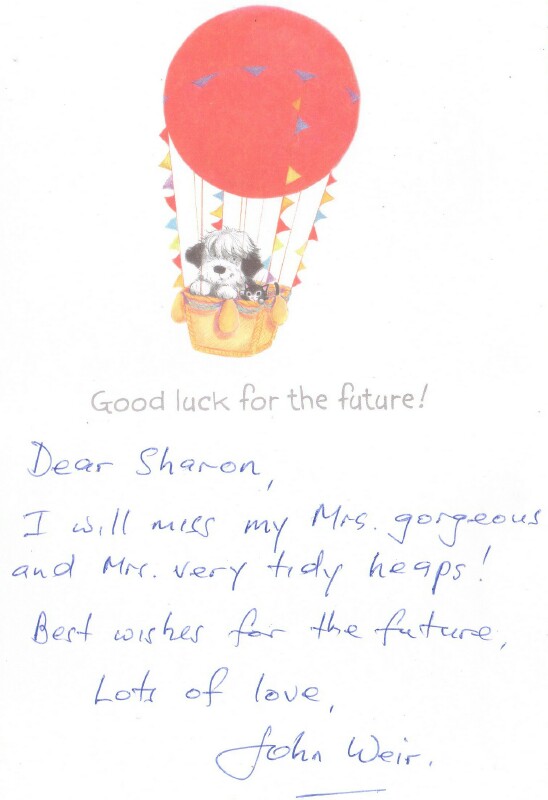 Good luck for the future!
Dear Sharon,
I will miss my Mrs. gorgeous
and Mrs. very tidy heaps!
Best wishes for the future,
Lots of love,
John Weir.